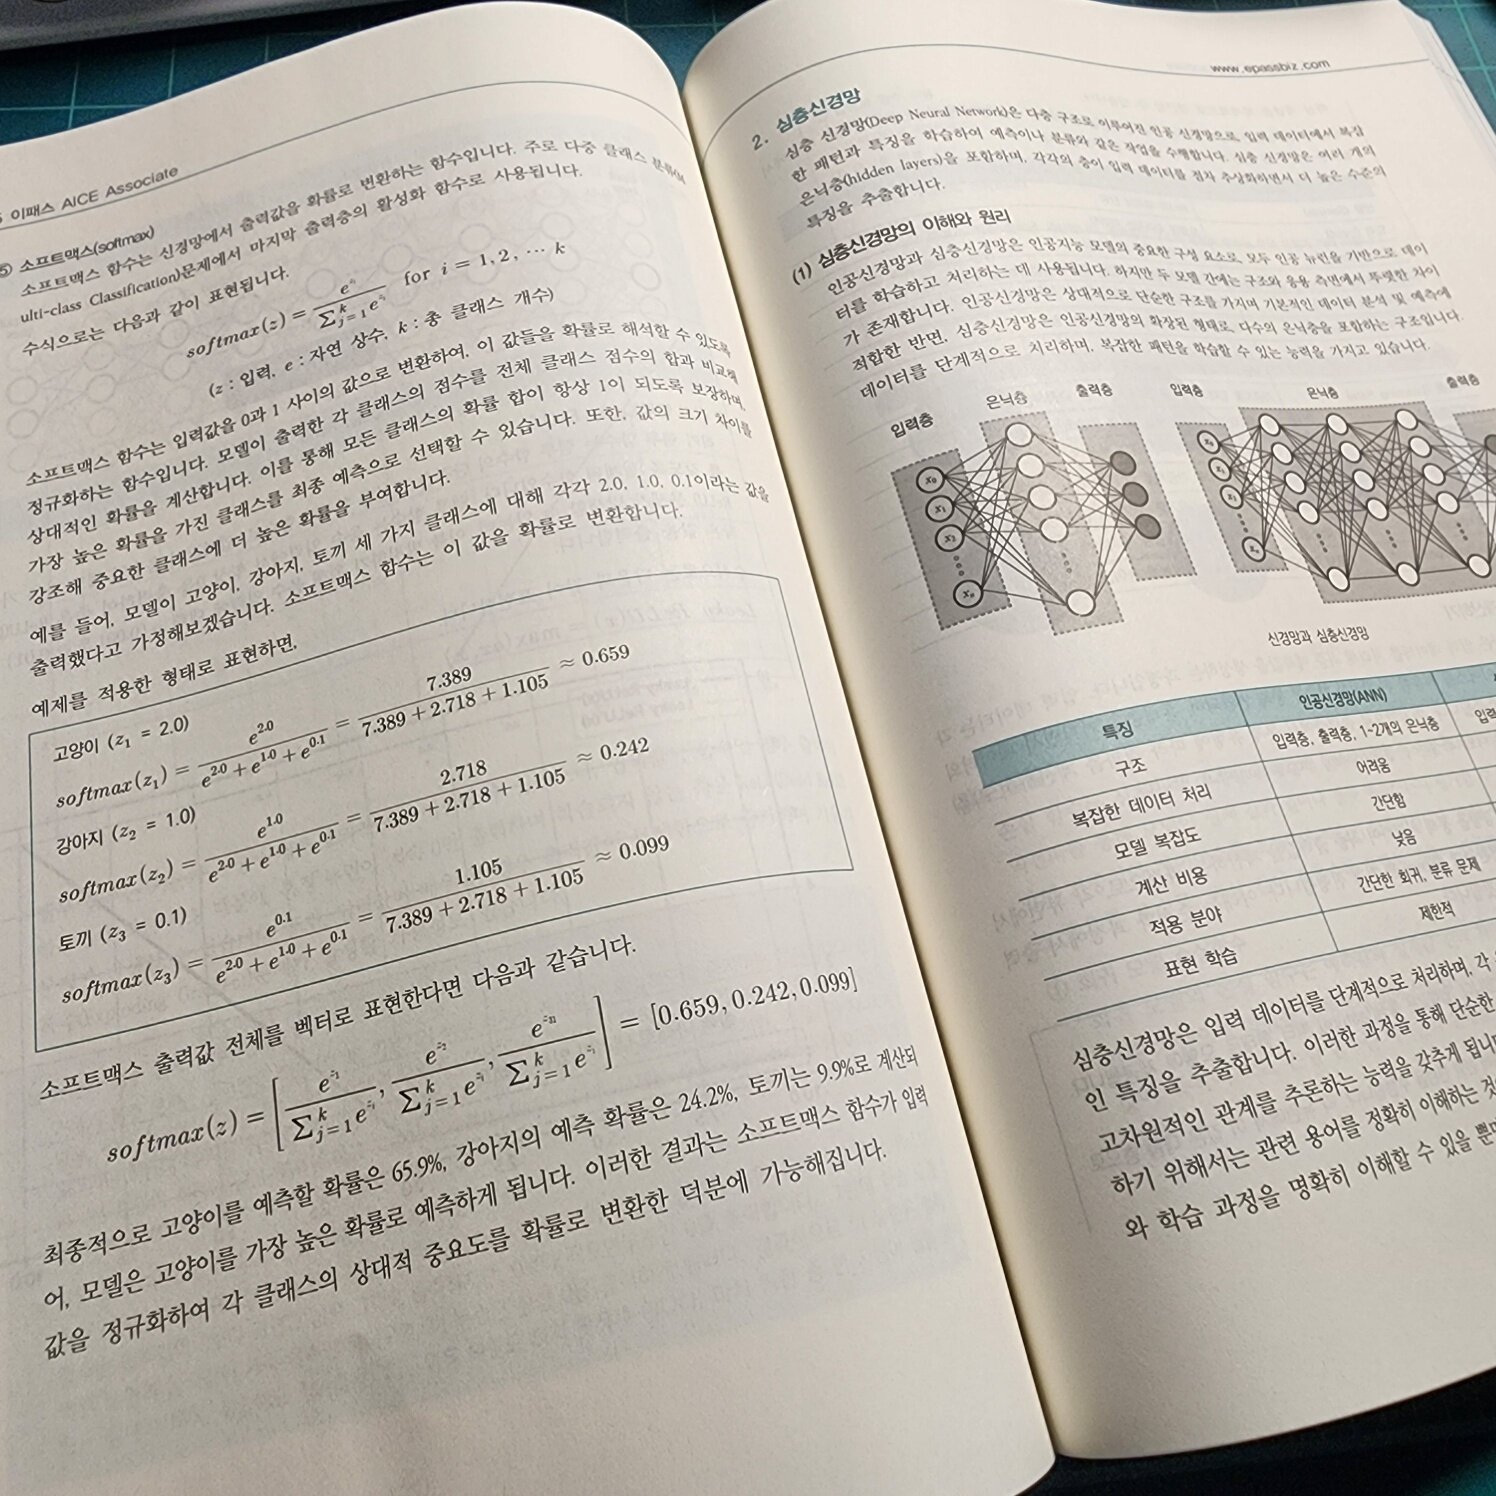 이패스 AICE Associate
⑤ 소프트맥스(softmax)
소프트맥스 함수는 신경망에서 출력값을 확률로 변환하는 함수입니다. 주로 다중 클래스
ulti-class Classification)문제에서 마지막 출력층의 활성화 함수로 사용됩니다.
수식으로는 다음과 같이 표현됩니다.
softmax(z) = e^{z_i} / ∑_{j=1}^{k} e^{z_j} for i = 1, 2, ⋯ k
(z : 입력, e : 자연 상수, k : 총 클래스 개수)
소프트맥스 함수는 입력값을 0과 1 사이의 값으로 변환하여, 이 값들을 확률로 해석할 수 있도록
정규화하는 함수입니다. 모델이 출력한 각 클래스의 점수를 전체 클래스 점수의 합과 비교해
상대적인 확률을 계산합니다. 이를 통해 모든 클래스의 확률 합이 항상 1이 되도록 보장하며,
가장 높은 확률을 가진 클래스를 최종 예측으로 선택할 수 있습니다. 또한, 값의 크기 차이를
강조해 중요한 클래스에 더 높은 확률을 부여합니다.
예를 들어, 모델이 고양이, 강아지, 토끼 세 가지 클래스에 대해 각각 2.0, 1.0, 0.1이라는 값을
출력했다고 가정해보겠습니다. 소프트맥스 함수는 이 값을 확률로 변환합니다.
예제를 적용한 형태로 표현하면,
고양이 (z₁ = 2.0)
softmax(z₁) = e^{2.0} / (e^{2.0} + e^{1.0} + e^{0.1}) = 7.389 / (7.389 + 2.718 + 1.105) ≈ 0.659
강아지 (z₂ = 1.0)
softmax(z₂) = e^{1.0} / (e^{2.0} + e^{1.0} + e^{0.1}) = 2.718 / (7.389 + 2.718 + 1.105) ≈ 0.242
토끼 (z₃ = 0.1)
softmax(z₃) = e^{0.1} / (e^{2.0} + e^{1.0} + e^{0.1}) = 1.105 / (7.389 + 2.718 + 1.105) ≈ 0.099
소프트맥스 출력값 전체를 벡터로 표현한다면 다음과 같습니다.
softmax(z) = [e^{z_1} / ∑_{j=1}^{k} e^{z_j}, e^{z_2} / ∑_{j=1}^{k} e^{z_j}, e^{z_n} / ∑_{j=1}^{k} e^{z_j}] = [0.659, 0.242, 0.099]
최종적으로 고양이를 예측할 확률은 65.9%, 강아지의 예측 확률은 24.2%, 토끼는 9.9%로 계산되
어, 모델은 고양이를 가장 높은 확률로 예측하게 됩니다. 이러한 결과는 소프트맥스 함수가 입력
값을 정규화하여 각 클래스의 상대적 중요도를 확률로 변환한 덕분에 가능해집니다.
www.epassbiz.com
2. 심층신경망
심층 신경망(Deep Neural Network)은 다층 구조로 이루어진 인공 신경망으로, 입력 데이터에서 복잡
한 패턴과 특징을 학습하여 예측이나 분류와 같은 작업을 수행합니다. 심층 신경망은 여러 개의
은닉층(hidden layers)을 포함하며, 각각의 층이 입력 데이터를 점차 추상화하면서 더 높은 수준의
특징을 추출합니다.
(1) 심층신경망의 이해와 원리
인공신경망과 심층신경망은 인공지능 모델의 중요한 구성 요소로, 모두 인공 뉴런을 기반으로 데이
터를 학습하고 처리하는 데 사용됩니다. 하지만 두 모델 간에는 구조와 응용 측면에서 뚜렷한 차이
가 존재합니다. 인공신경망은 상대적으로 단순한 구조를 가지며 기본적인 데이터 분석 및 예측에
적합한 반면, 심층신경망은 인공신경망의 확장된 형태로, 다수의 은닉층을 포함하는 구조입니다.
데이터를 단계적으로 처리하며, 복잡한 패턴을 학습할 수 있는 능력을 가지고 있습니다.
입력층 은닉층 출력층 입력층 은닉층 출력층
x₀
x₁
x₂
xₙ
신경망과 심층신경망
특징 인공신경망(ANN)
구조 입력층, 출력층, 1~2개의 은닉층
복잡한 데이터 처리 어려움
모델 복잡도 간단함
계산 비용 낮음
적용 분야 간단한 회귀, 분류 문제
표현 학습 제한적
심층신경망은 입력 데이터를 단계적으로 처리하며, 각
인 특징을 추출합니다. 이러한 과정을 통해 단순한
고차원적인 관계를 추론하는 능력을 갖추게 됩니다
하기 위해서는 관련 용어를 정확히 이해하는 것
와 학습 과정을 명확히 이해할 수 있을 뿐만